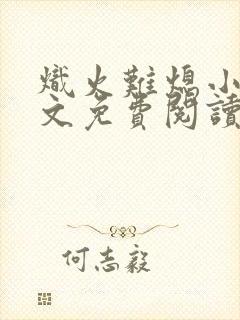 熾火難熄小
文免費閱讀
何志毅